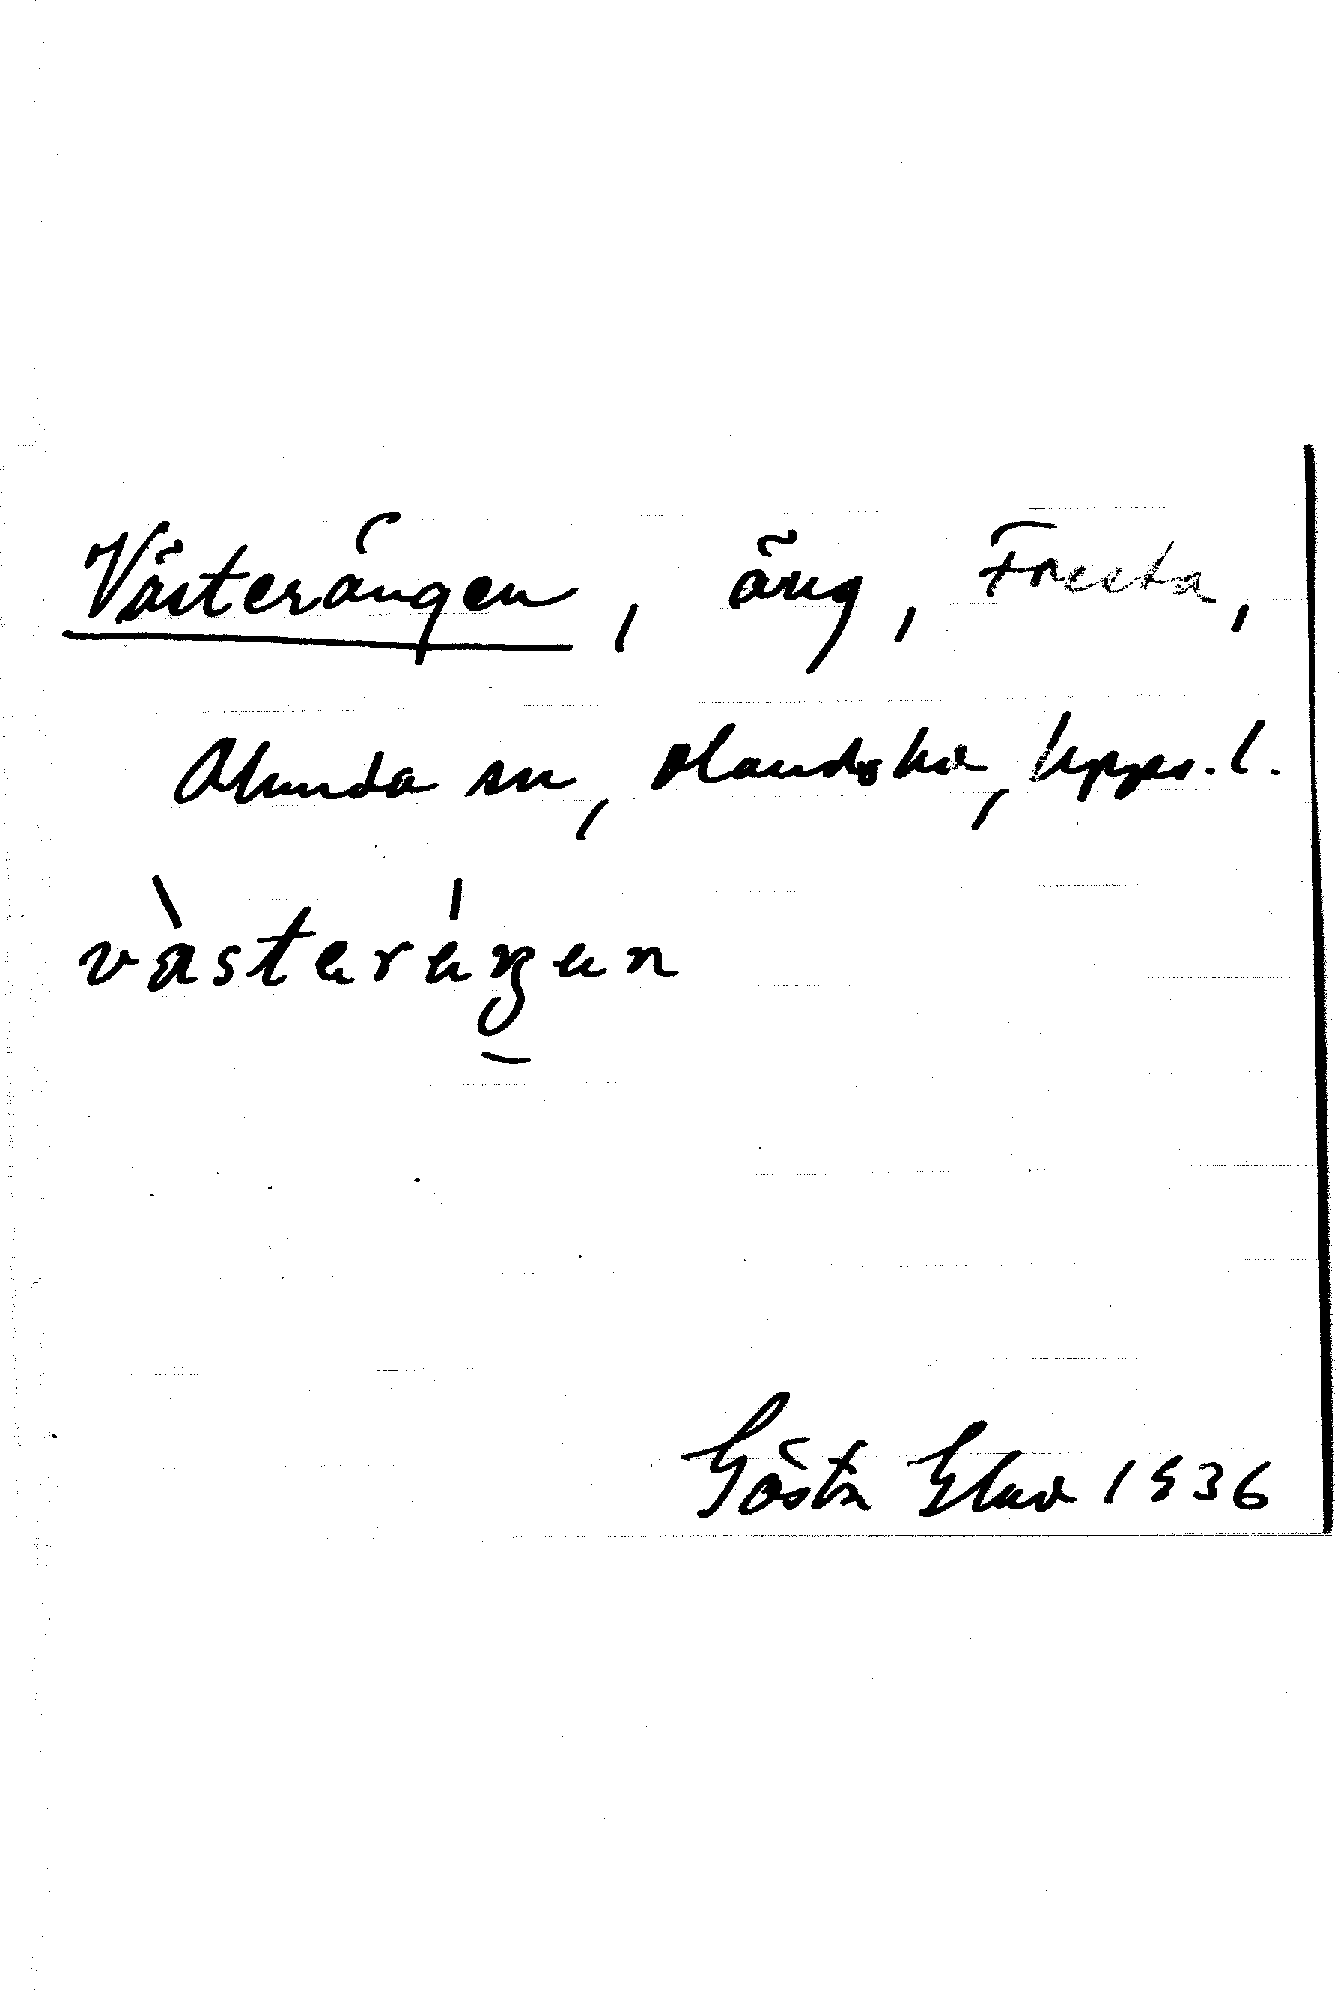 Västerängen, äng, Foresta,
Alunda sn, Olands hd, Upps. l.
västaräŋan
Gösta Elav 1936